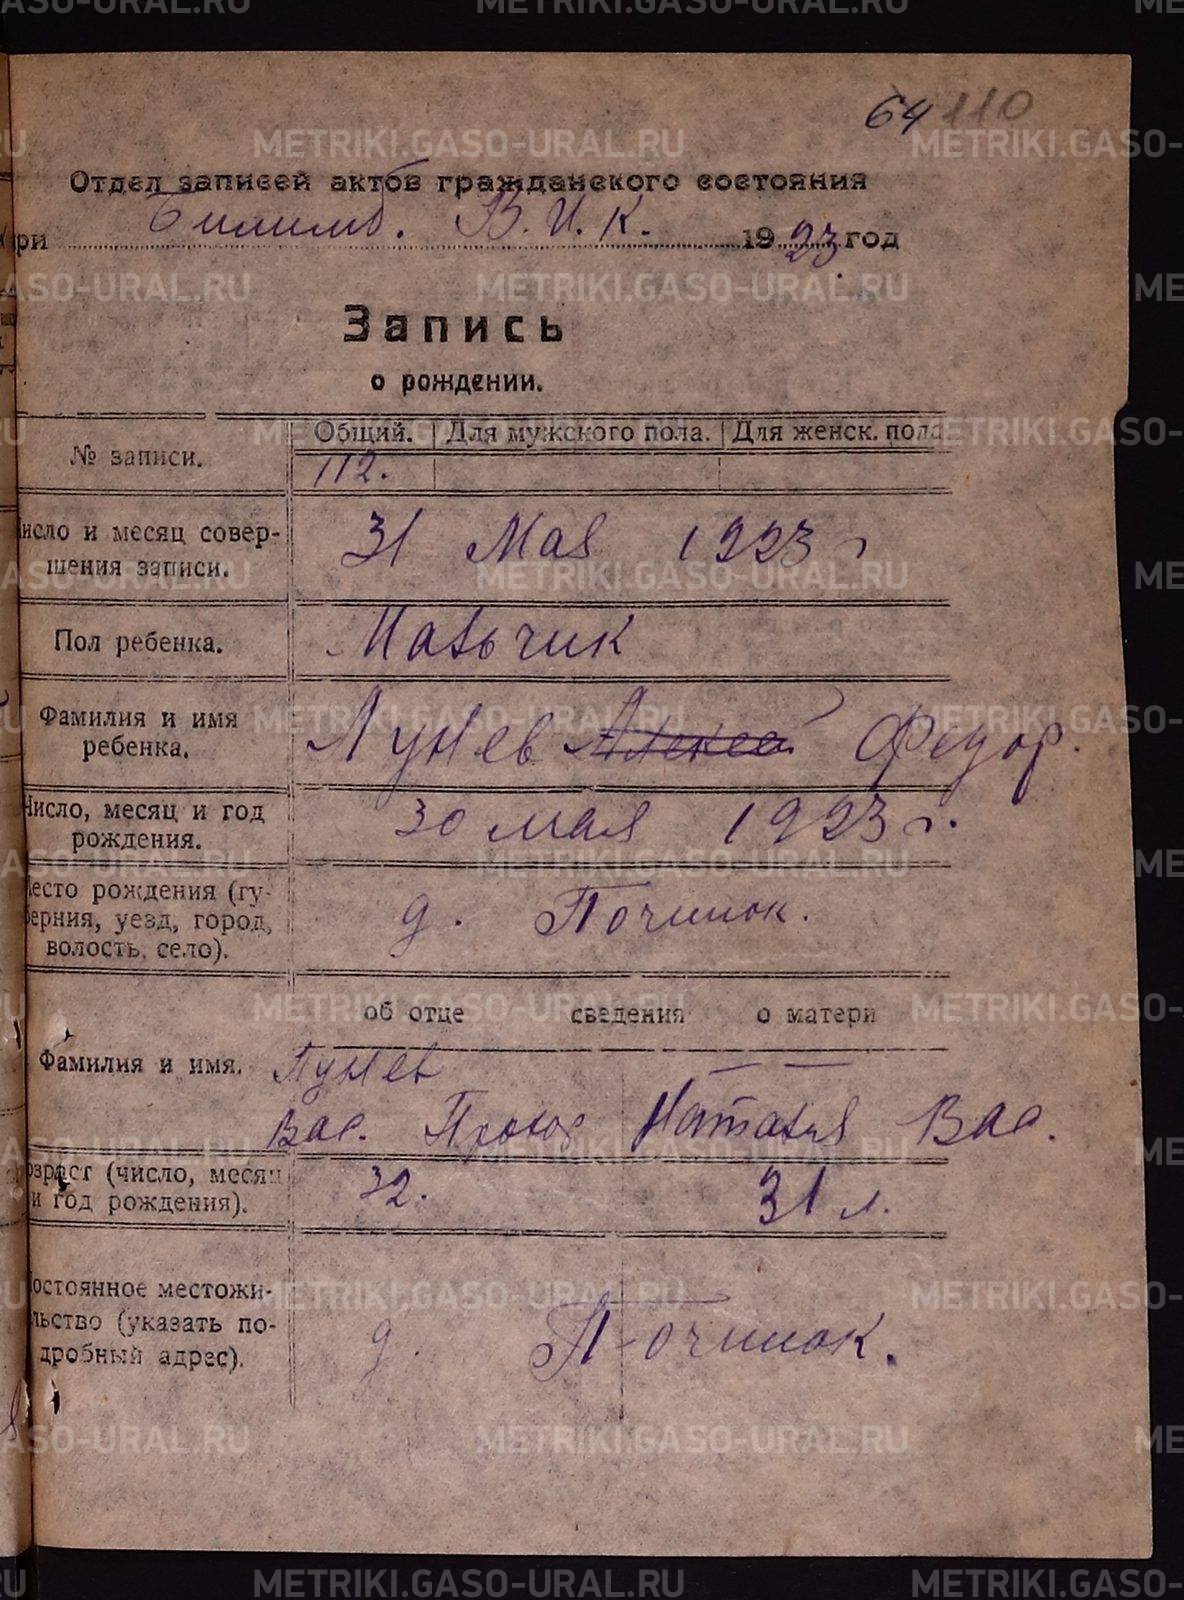 64 110
Отдел записей актов гражданского состояния
при Билимб. В. И. К. 1923 год
Запись
о рождении.
Общий. Для мужского пола. Для женск. пола
№ записи. 112.
Число и месяц совер-
шения записи. 31 Мая 1923 г
Пол ребенка. Мальчик
Фамилия и имя
ребенка. Лунев Алексей Федор.
Число, месяц и год
рождения. 30 мая 1923 г.
Место рождения (гу-
берния, уезд, город,
волость, село). д. Починок.
об отце сведения о матери
Фамилия и имя. Лунев — —
Вас. Прок Наталья Вас.
Возраст (число, месяц
и год рождения). 32. 31 л.
Постоянное местожи-
льство (указать по-
дробный адрес). д. Починок.
METRIKI.GASO-URAL.RU